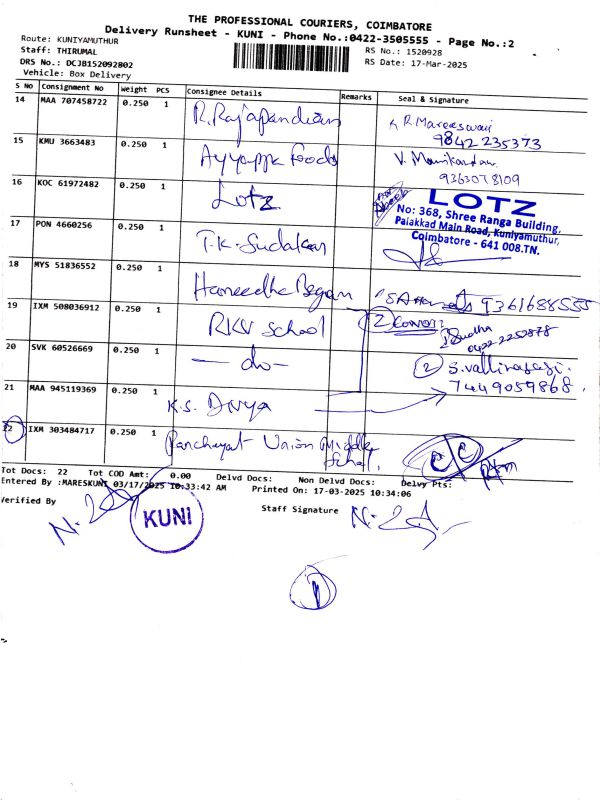 THE PROFESSIONAL COURIERS, COIMBATORE
Delivery Runsheet - KUNI - Phone No.:0422-3505555 - Page No.:2
Route: KUNIYAMUTHUR
Staff: THIRUMAL
RS No.: 1520928
DRS No.: DCJB152092802
RS Date: 17-Mar-2025
Vehicle: Box Delivery
S No Consignment No Weight PCS Consignee Details Remarks Seal & Signature
14 MAA 707458722 0.250 1 R.Rajapandian R.Mareeswari
9842235373
15 KMU 3663483 0.250 1 Ayyappa Foods V. Manikandan
9363078109
16 KOC 61972482 0.250 1 Lotz LOTZ
No: 368, Shree Ranga Building,
Palakkad Main Road, Kuniyamuthur,
Coimbatore - 641 008.TN.
17 PON 4660256 0.250 1 T.K. Sudakar
18 MYS 51836552 0.250 1 Hameedha Begam 9361688555
19 IXM 508036912 0.250 1 RKV School 2
Sudha
0422 2252878
20 SVK 60526669 0.250 1 — do — 2 S.Valliraaji.
7449059868
21 MAA 945119369 0.250 1 K.S. Divya
22 IXM 303484717 0.250 1 Panchayat Union Middle
School.
Tot Docs: 22 Tot COD Amt: 0.00 Delvd Docs: Non Delvd Docs: Delvy Pts:
Entered By :MARESKUNI 03/17/2025 10:33:42 AM Printed On: 17-03-2025 10:34:06
Verified By
KUNI
Staff Signature